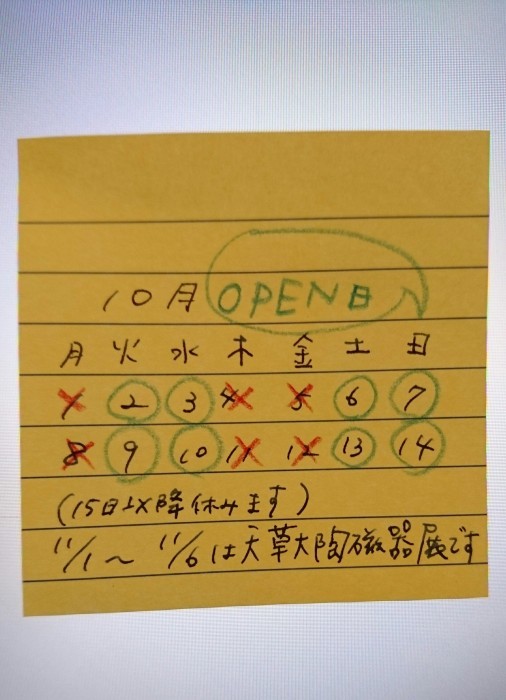 10月 OPEN日
月 火 水 木 金 土 日
1 2 3 4 5 6 7
8 9 10 11 12 13 14
(15日以降休みます)
11/1〜11/6は天草大陶磁器展です